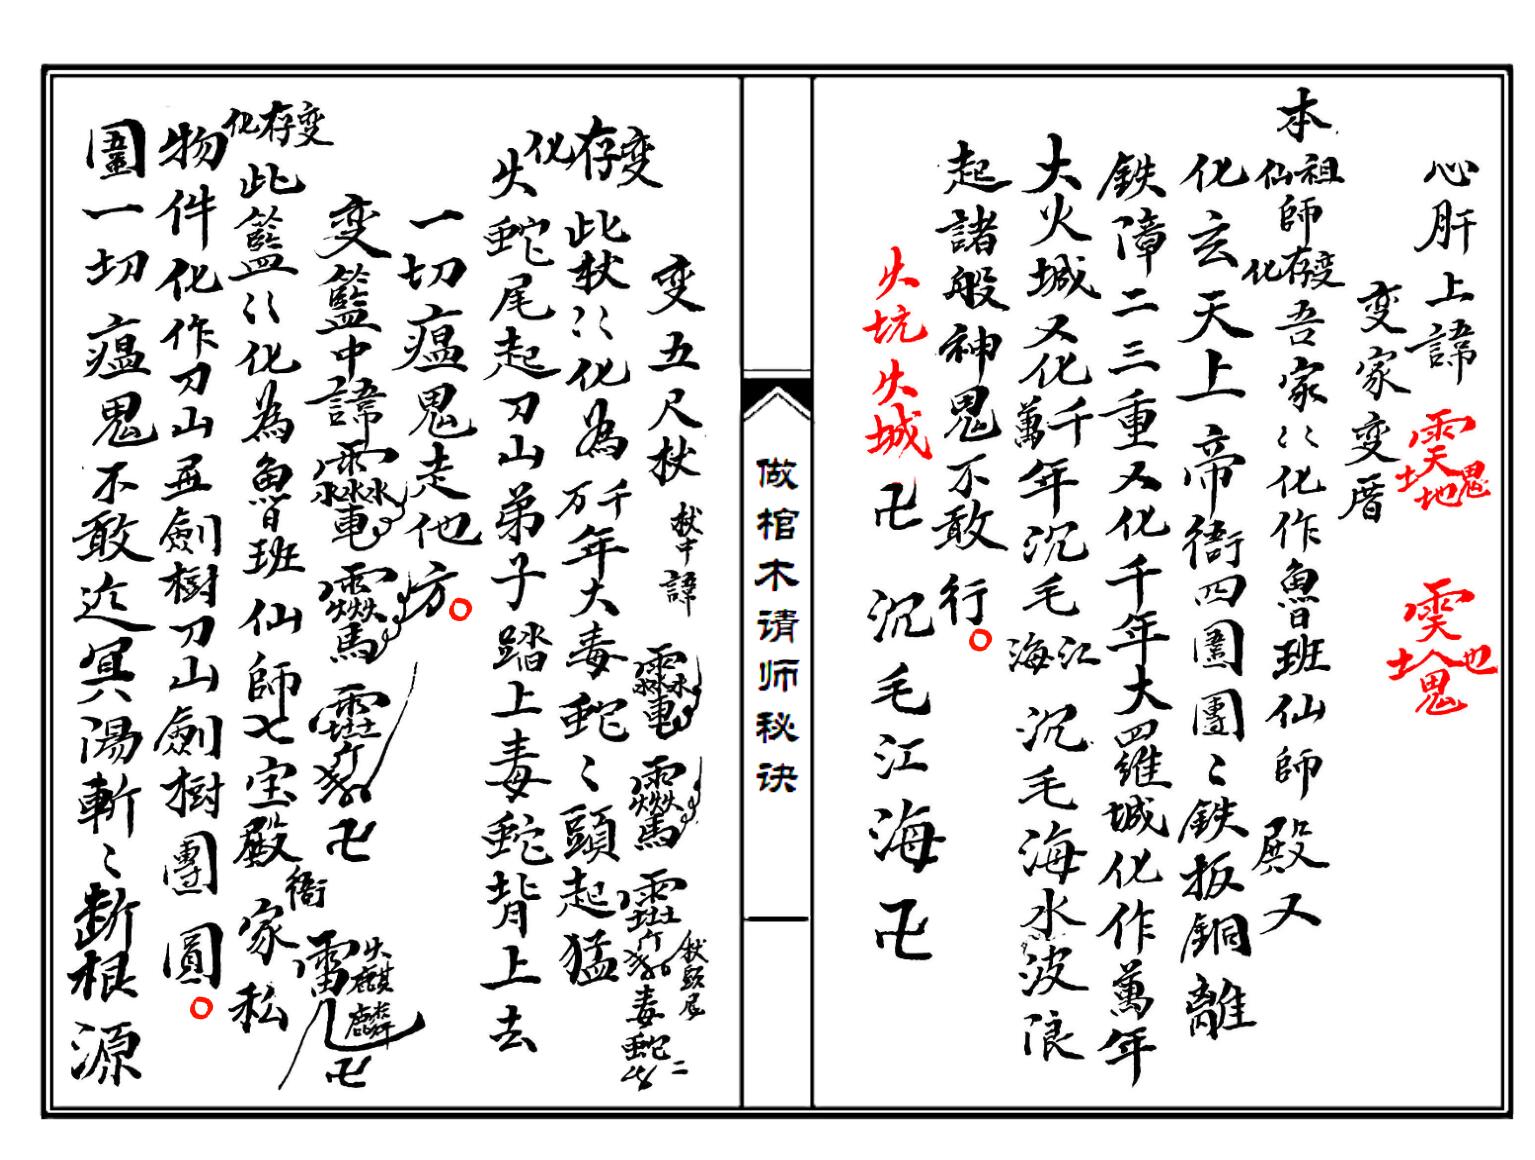 心肝上諱
変家変厝
本祖師仙師存変化吾家〻化作魯班仙師殿又
化玄天上帝衙四圍團〻鉄扳銅離
鉄障二三重又化千年大羅城化作萬年
大火城又化千萬年沉毛江海沉毛海水波浪
起諸般神鬼不敢行
火坑火城卍沉毛江海卍
做棺木请师秘诀
変五尺杖 杖中諱
存変化此杖〻化為千万年大毒蛇〻頭起猛
火蛇尾起刀山弟子踏上毒蛇背上去
一切瘟鬼走他方
変籃中諱
存変化此籃〻化為魯班仙師七宝殿衙家私
物件化作刀山並劍樹刀山劍樹團圓
圍一切瘟鬼不敢迯冥陽斬〻断根源